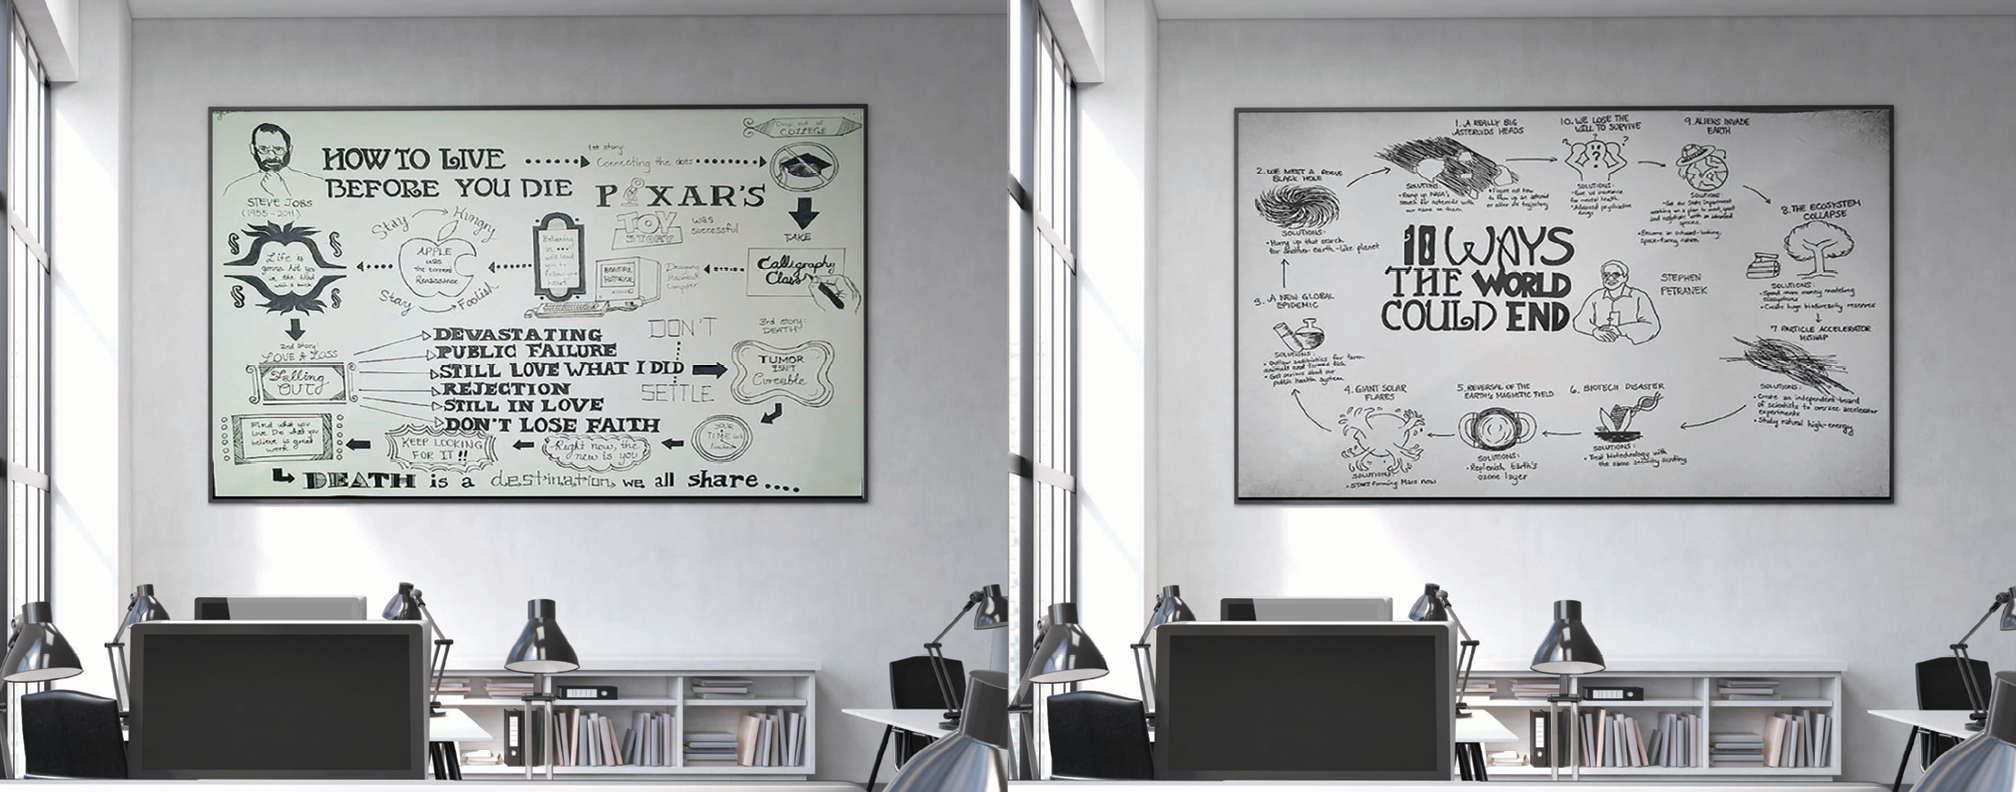 HOW TO LIVE
BEFORE YOU DIE
STEVE JOBS
(1955 - 2011)
1st story:
Connecting the dots
Drop out of
COLLEGE
TAKE
Calligraphy
Class
PIXAR'S
TOY
STORY
was
successful
BEAUTIFUL
Believing
in
will lead
you to
follow your
heart
Stay Hungry
APPLE
was
the current
Renaissance
Stay Foolish
Life is
gonna hit you
in the head
with a brick
2nd story:
LOVE & LOSS
Falling
OUT
DEVASTATING
PUBLIC FAILURE
STILL LOVE WHAT I DID
REJECTION
STILL IN LOVE
DON'T LOSE FAITH
DON'T
SETTLE
3rd story:
DEATH
TUMOR
ISN'T
Cureable
YOUR
TIME is
Right now, the
new is you
KEEP LOOKING
FOR IT!!
Find what you
love. Do what you
believe is great
work
DEATH is a destination we all share....
10 WAYS
THE WORLD
COULD END
STEPHEN
PETRANEK
1. A REALLY BIG
ASTEROIDS HEADS
SOLUTIONS:
10. WE LOSE THE
WILL TO SURVIVE
SOLUTIONS:
for mental health
• Advanced psychiatric
drugs
9. ALIENS INVADE
EARTH
SOLUTIONS:
• Become an outward-looking,
space-faring nation
8. THE ECOSYSTEM
COLLAPSE
SOLUTIONS:
• Spend more money modeling
ecosystems
• Create huge biodiversity reserves
7. PARTICLE ACCELERATOR
MISHAP
SOLUTIONS:
• Create an independent board
of scientists to oversee accelerator
experiments
• Study natural high-energy
6. BIOTECH DISASTER
SOLUTIONS:
• Treat biotechnology with
the same security
5. REVERSAL OF THE
EARTH'S MAGNETIC FIELD
SOLUTIONS:
• Replenish Earth's
ozone layer
4. GIANT SOLAR
FLARES
SOLUTIONS:
• START forming Mars now
3. A NEW GLOBAL
EPIDEMIC
SOLUTIONS:
• Outlaw antibiotics for farm
animals and farmed fish
• Get serious about our
public health system
2. WE MEET A ROGUE
BLACK HOLE
SOLUTIONS:
• Hurry up that search
for another earth-like planet